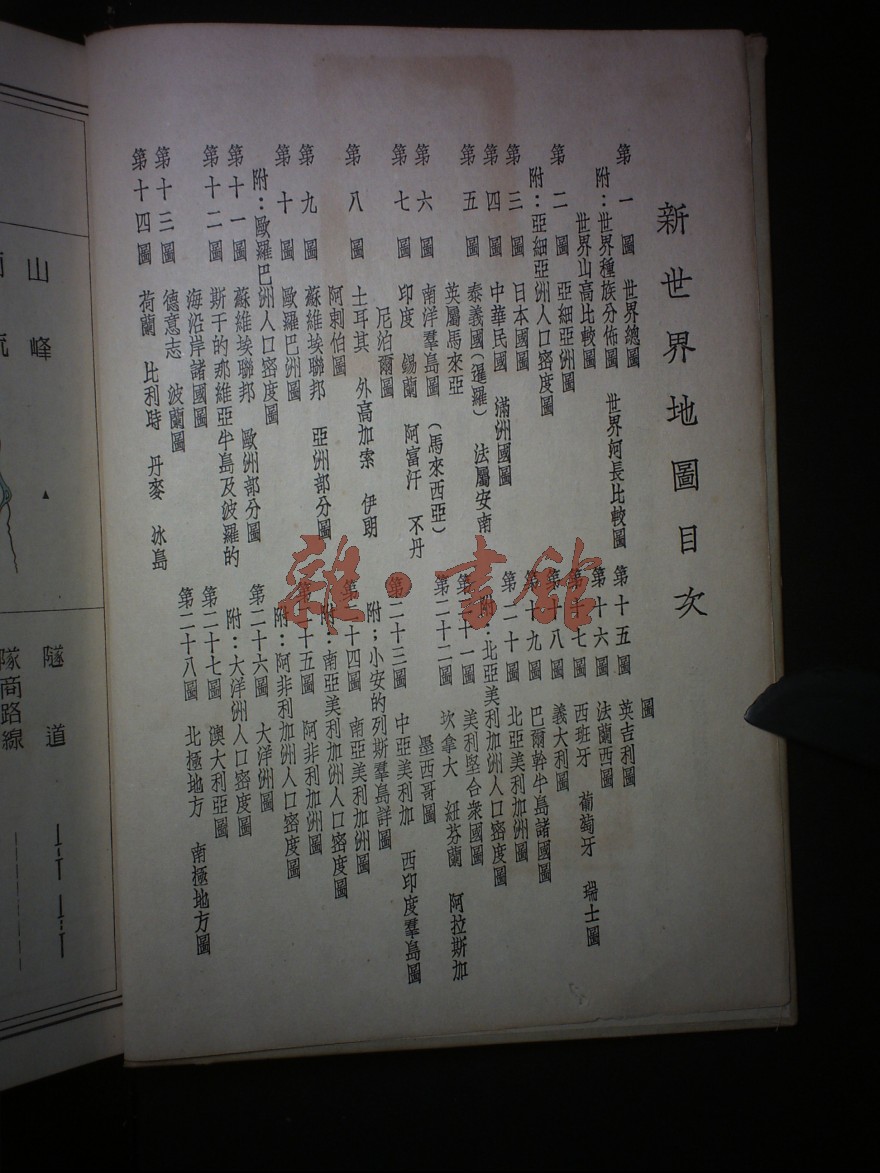 新世界地圖目次
第一圖 世界總圖
附：世界種族分佈圖 世界河長比較圖
世界山高比較圖
第二圖 亞細亞洲圖
附：亞細亞洲人口密度圖
第三圖 日本國圖
第四圖 中華民國 滿洲國圖
第五圖 泰義國（暹羅） 法屬安南
英屬馬來亞
第六圖 南洋羣島圖 （馬來西亞）
第七圖 印度 錫蘭 阿富汗 不丹
尼泊爾圖
第八圖 土耳其 外高加索 伊朗
阿剌伯圖
第九圖 蘇維埃聯邦 亞洲部分圖
第十圖 歐羅巴洲圖
附：歐羅巴洲人口密度圖
第十一圖 蘇維埃聯邦 歐洲部分圖
第十二圖 斯干的那維亞半島及波羅的
海沿岸諸國圖
第十三圖 德意志 波蘭圖
第十四圖 荷蘭 比利時 丹麥 冰島
圖
第十五圖 英吉利圖
第十六圖 法蘭西圖
第十七圖 西班牙 葡萄牙 瑞士圖
第十八圖 義大利圖
第十九圖 巴爾幹半島諸國圖
第二十圖 北亞美利加洲圖
附：北亞美利加洲人口密度圖
第二十一圖 美利堅合衆國圖
第二十二圖 坎拿大 紐芬蘭 阿拉斯加
墨西哥圖
第二十三圖 中亞美利加 西印度羣島圖
附；小安的列斯羣島詳圖
第二十四圖 南亞美利加洲圖
附：南亞美利加洲人口密度圖
第二十五圖 阿非利加洲圖
附：阿非利加洲人口密度圖
第二十六圖 大洋洲圖
附：大洋洲人口密度圖
第二十七圖 澳大利亞圖
第二十八圖 北極地方 南極地方圖
山峰
隧道
隊商路線
雜·書館